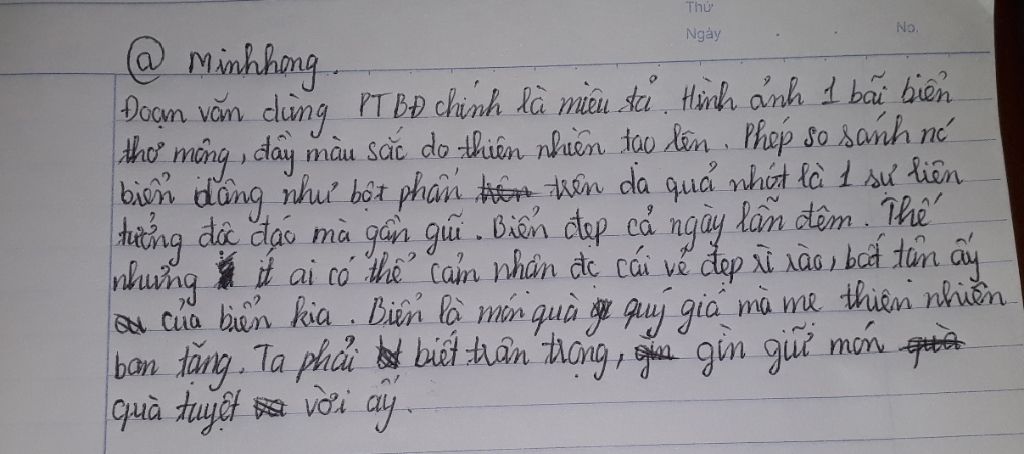 Thứ
Ngày No.
@ minhhong.
Đoạn văn dùng PTBĐ chính là miêu tả. Hình ảnh 1 bãi biển
thơ mộng, đầy màu sắc do thiên nhiên tạo lên. Phép so sánh nó
biển dâng như bột phấn trên da quả nhót là 1 sự liên
tưởng độc đáo mà gần gũi. Biển đẹp cả ngày lẫn đêm. Thế
nhưng ít ai có thể cảm nhận đc cái vẻ đẹp rì rào, bất tận ấy
của biển kia. Biển là món quà quý giá mà mẹ thiên nhiên
ban tặng. Ta phải biết trân trọng, gìn giữ món
quà tuyệt vời ấy.